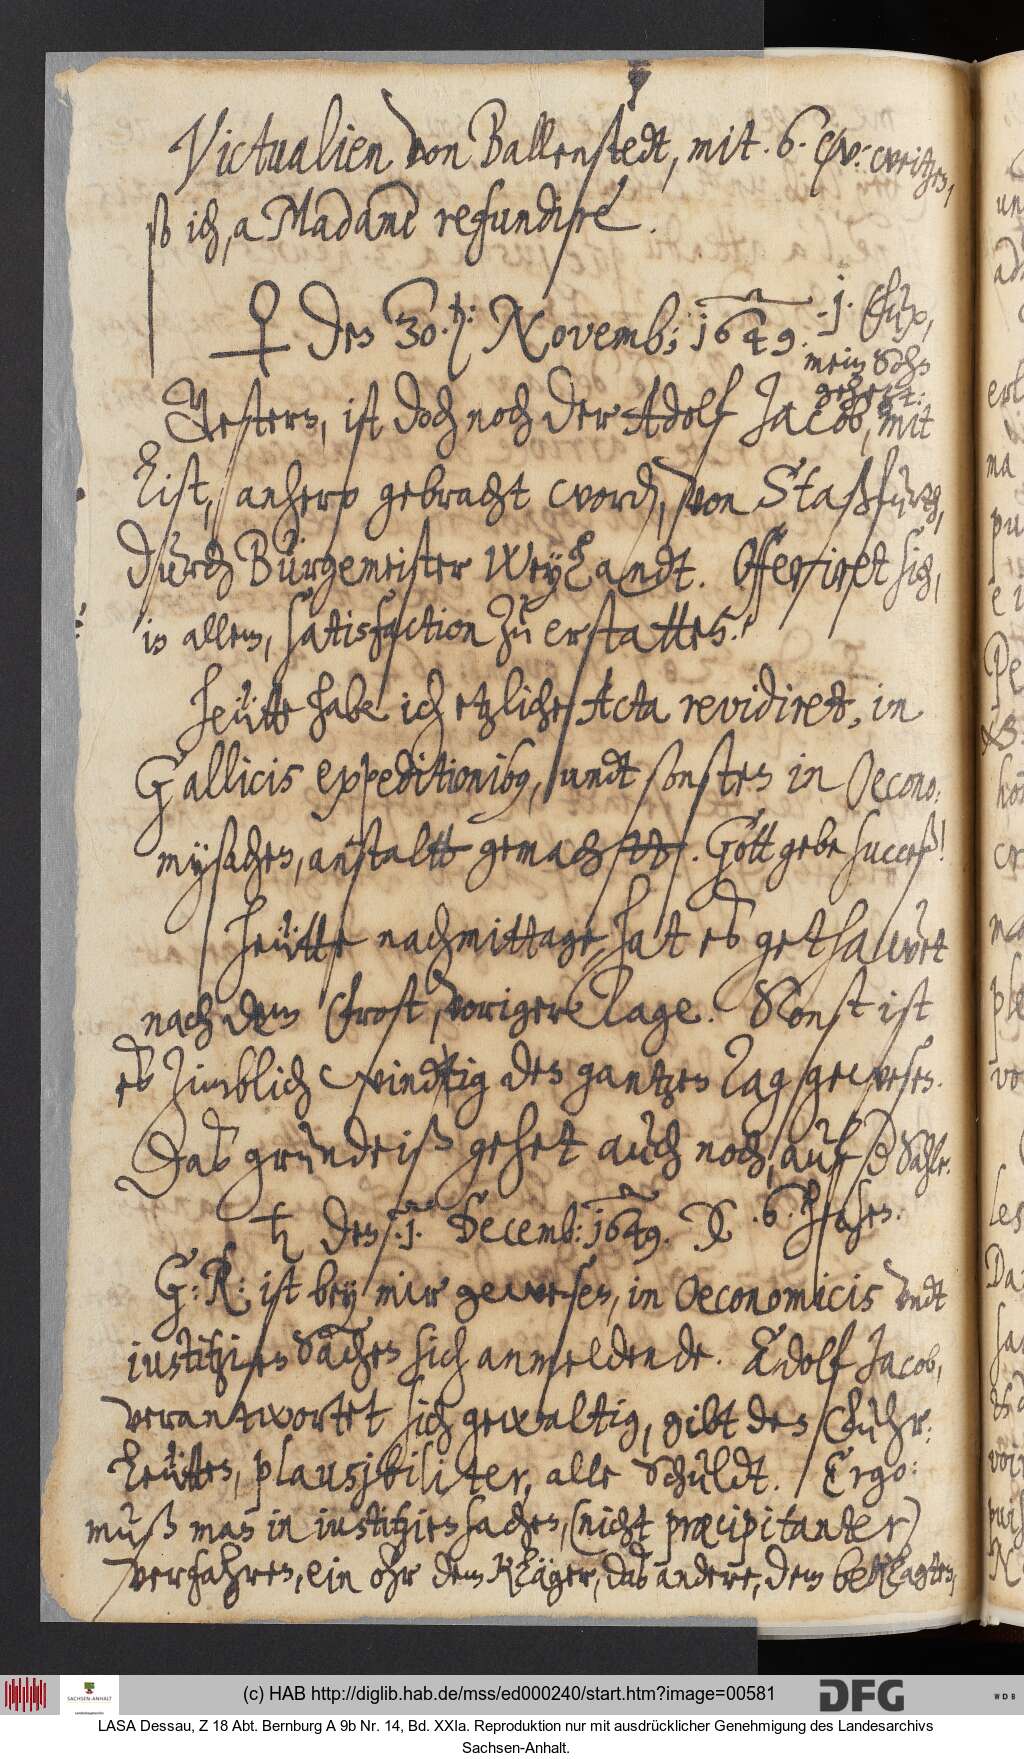 Victualien von Ballenstedt, mit 6.
ich, a Madame refundire.
♀ den 30. Novemb: 1649. . j .
mein Sohn
gehezt:
Gestern, ist doch noch der Adolf Jacob, mit
List, anhero gebracht word, von Staßfurth,
durch Bürgemeister Weylandt. Offeriret sich,
in allem, satisfaction zu erstatten.
Heütte habe ich etzliche Acta revidiret, in
Gallicis expeditionibus, undt sonsten in Oecono:
mysachen, anstaltt gemacht. Gott gebe succeß!
Heütte nachmittage, hat es gethawet
nach dem frost, voriger Tage. Sonst ist
es zimblich windtig den gantzen Tag, gewesen.
Das grundeiß gehet auch noch, auf der Sahle.
♄ den 1. Decemb: 1649. . 6 . hasen.
G: K: ist bey mir gewesen, in Oeconomicis vndt
iustitzien Sachen sich anmeldende. Adolf Jacob,
verantwortet sich gewaltig, gibt den Fuhr:
leütten, plausibiliter, alle schuldt. Ergo:
muß man in iustitzien sachen, (nicht præcipitanter)
verfahren, ein ohr dem Kläger, das andere, dem beklagten,
(c) HAB http://diglib.hab.de/mss/ed000240/start.htm?image=00581
SACHSEN-ANHALT
DFG
WDB
LASA Dessau, Z 18 Abt. Bernburg A 9b Nr. 14, Bd. XXIa. Reproduktion nur mit ausdrücklicher Genehmigung des Landesarchivs
Sachsen-Anhalt.